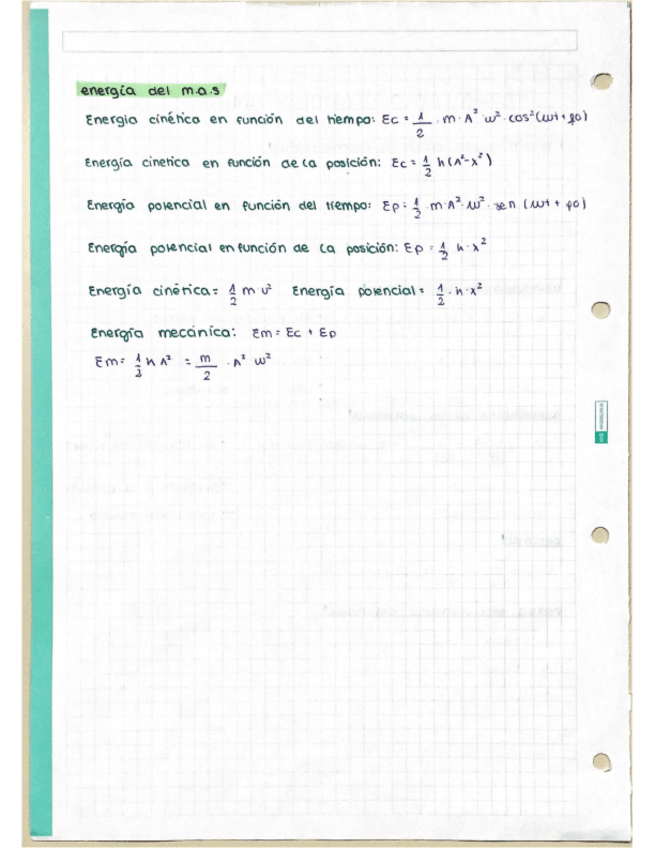 energía del m.a.s
Energía cinética en función del tiempo: Ec = 1/2 · m · A² · w² · cos²(wt + φo)
Energía cinetica en función de la posición: Ec = 1/2 k (A² - x²)
Energía potencial en función del tiempo: Ep = 1/2 · m · A² · w² · sen (wt + φo)
Energía potencial en función de la posición: Ep = 1/2 k · x²
Energía cinética = 1/2 m · v² Energía potencial = 1/2 · k · x²
Energía mecánica: Em = Ec + Ep
Em = 1/2 k A² = m/2 · A² w²